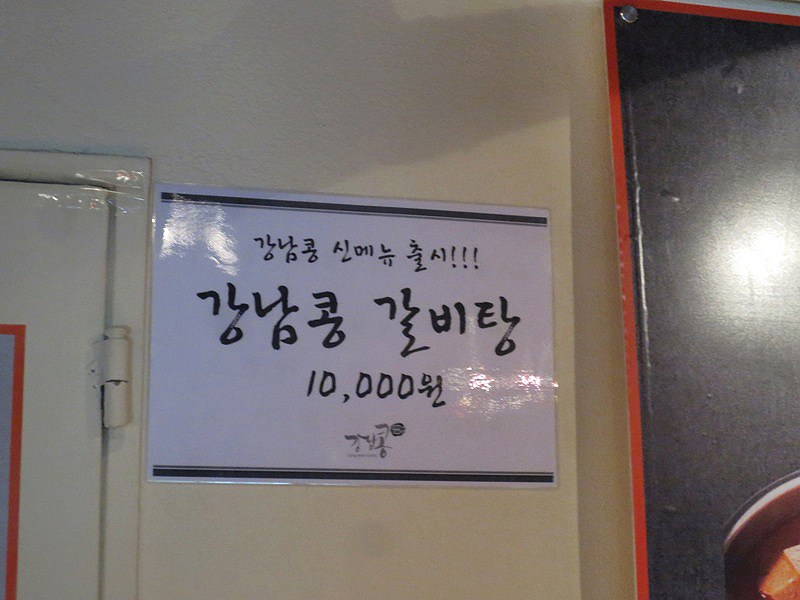 강남콩 신메뉴 출시!!!
강남콩 갈비탕
10,000원
강남콩